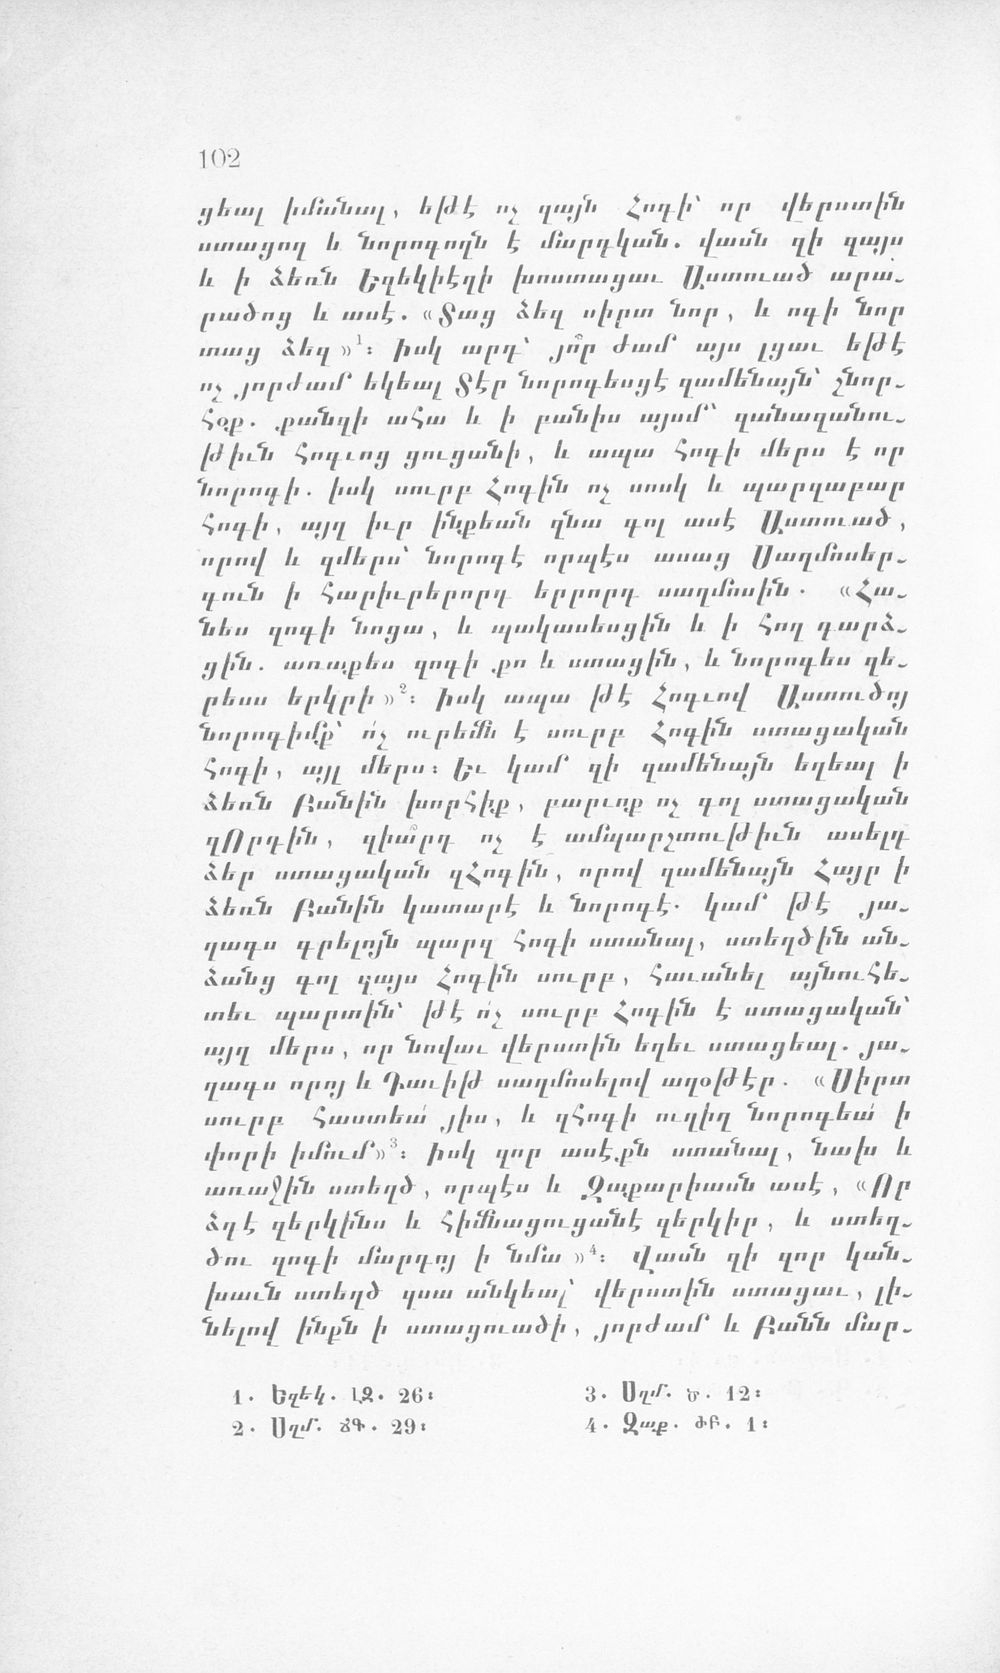 102
ցեալ իմանալ, եթէ ոչ զայն Հոգի՝ որ վերստին
ստացող և նորոգողն է մարդկան. վասն զի զայս
և ի ձեռն Եզեկիէղի խոստացաւ Աստուած արա֊
րածոց և ասէ. «Տաց ձեզ սիրտ նոր, և ոգի նոր
տաց ձեզ»¹։ իսկ արդ՝ յո՞ր ժամ այս լցաւ եթէ
ոչ յորժամ եկեալ Տէր նորոգեսցէ զամենայն՝ շնոր֊
հօք. քանզի ահա և ի բանիս այսմ՝ զանազանու֊
թիւն հոգւոց ցուցանի, և ապա հոգի մերս է որ
նորոգի. իսկ սուրբ Հոգին ոչ սոսկ և պարզաբար
հոգի, այղ իւր ինքեան զնա գոլ ասէ Աստուած,
որով և զմերս՝ նորոգէ որպէս ասաց Սաղմոսեր֊
գուն ի հարիւրերորդ երրորդ սաղմոսին. «Հա֊
նես զոգի նոցա, և պակասեսցին և ի հող դարձ֊
ցին. առաքես զոգի քո և ստացին, և նորոգես զե֊
րեսս երկրի»²։ իսկ ապա թէ Հոգւով Աստուծոյ
նորոգիմք՝ ո՛չ ուրեմն է սուրբ Հոգին ստացական
հոգի, այլ մերս։ Եւ կամ զի զամենայն եղեալ ի
ձեռն Բանին խորհիք, բարւոք ոչ գոլ ստացական
զՈրդին, զիա՞րդ ոչ է ամպարշտութիւն ասելդ
ձեր ստացական զՀոգին, որով զամենայն Հայր ի
ձեռն Բանին կատարէ և նորոգէ. կամ թէ յա֊
ղագս գրելոյն պարզ հոգի ստանալ, ստեղծին ան֊
ձանց գոլ զայս Հոգին սուրբ, հաւանել այնուհե֊
տեւ պարտին՝ թէ ո՛չ սուրբ Հոգին է ստացական՝
այղ մերս, որ նովաւ վերստին եղեւ ստացեալ. յա֊
ղագս որոյ և Դաւիթ սաղմոսելով աղօթէր. «Սիրտ
սուրբ հաստեա՛ յիս, և զհոգի ուղիղ նորոգեա՛ ի
փորի իմում»³։ իսկ զոր ասէքն ստանալ, նախ և
առաջին ստեղծ, որպէս և Զաքարիասն ասէ, «Որ
ձղէ զերկինս և հիմնացուցանէ զերկիր, և ստեղ֊
ծու զոգի մարդոյ ի նմա»⁴։ Վասն զի զոր կան֊
խաւն ստեղծ զսա անկեալ՝ վերստին ստացաւ, լի֊
նելով ինքն ի ստացուածի, յորժամ և Բանն մար֊
1. Եզեկ. ԼԶ. 26։
2. Սղմ. ՃԳ. 29։
3. Սղմ. Ծ. 12։
4. Զաք. ԺԲ. 1։